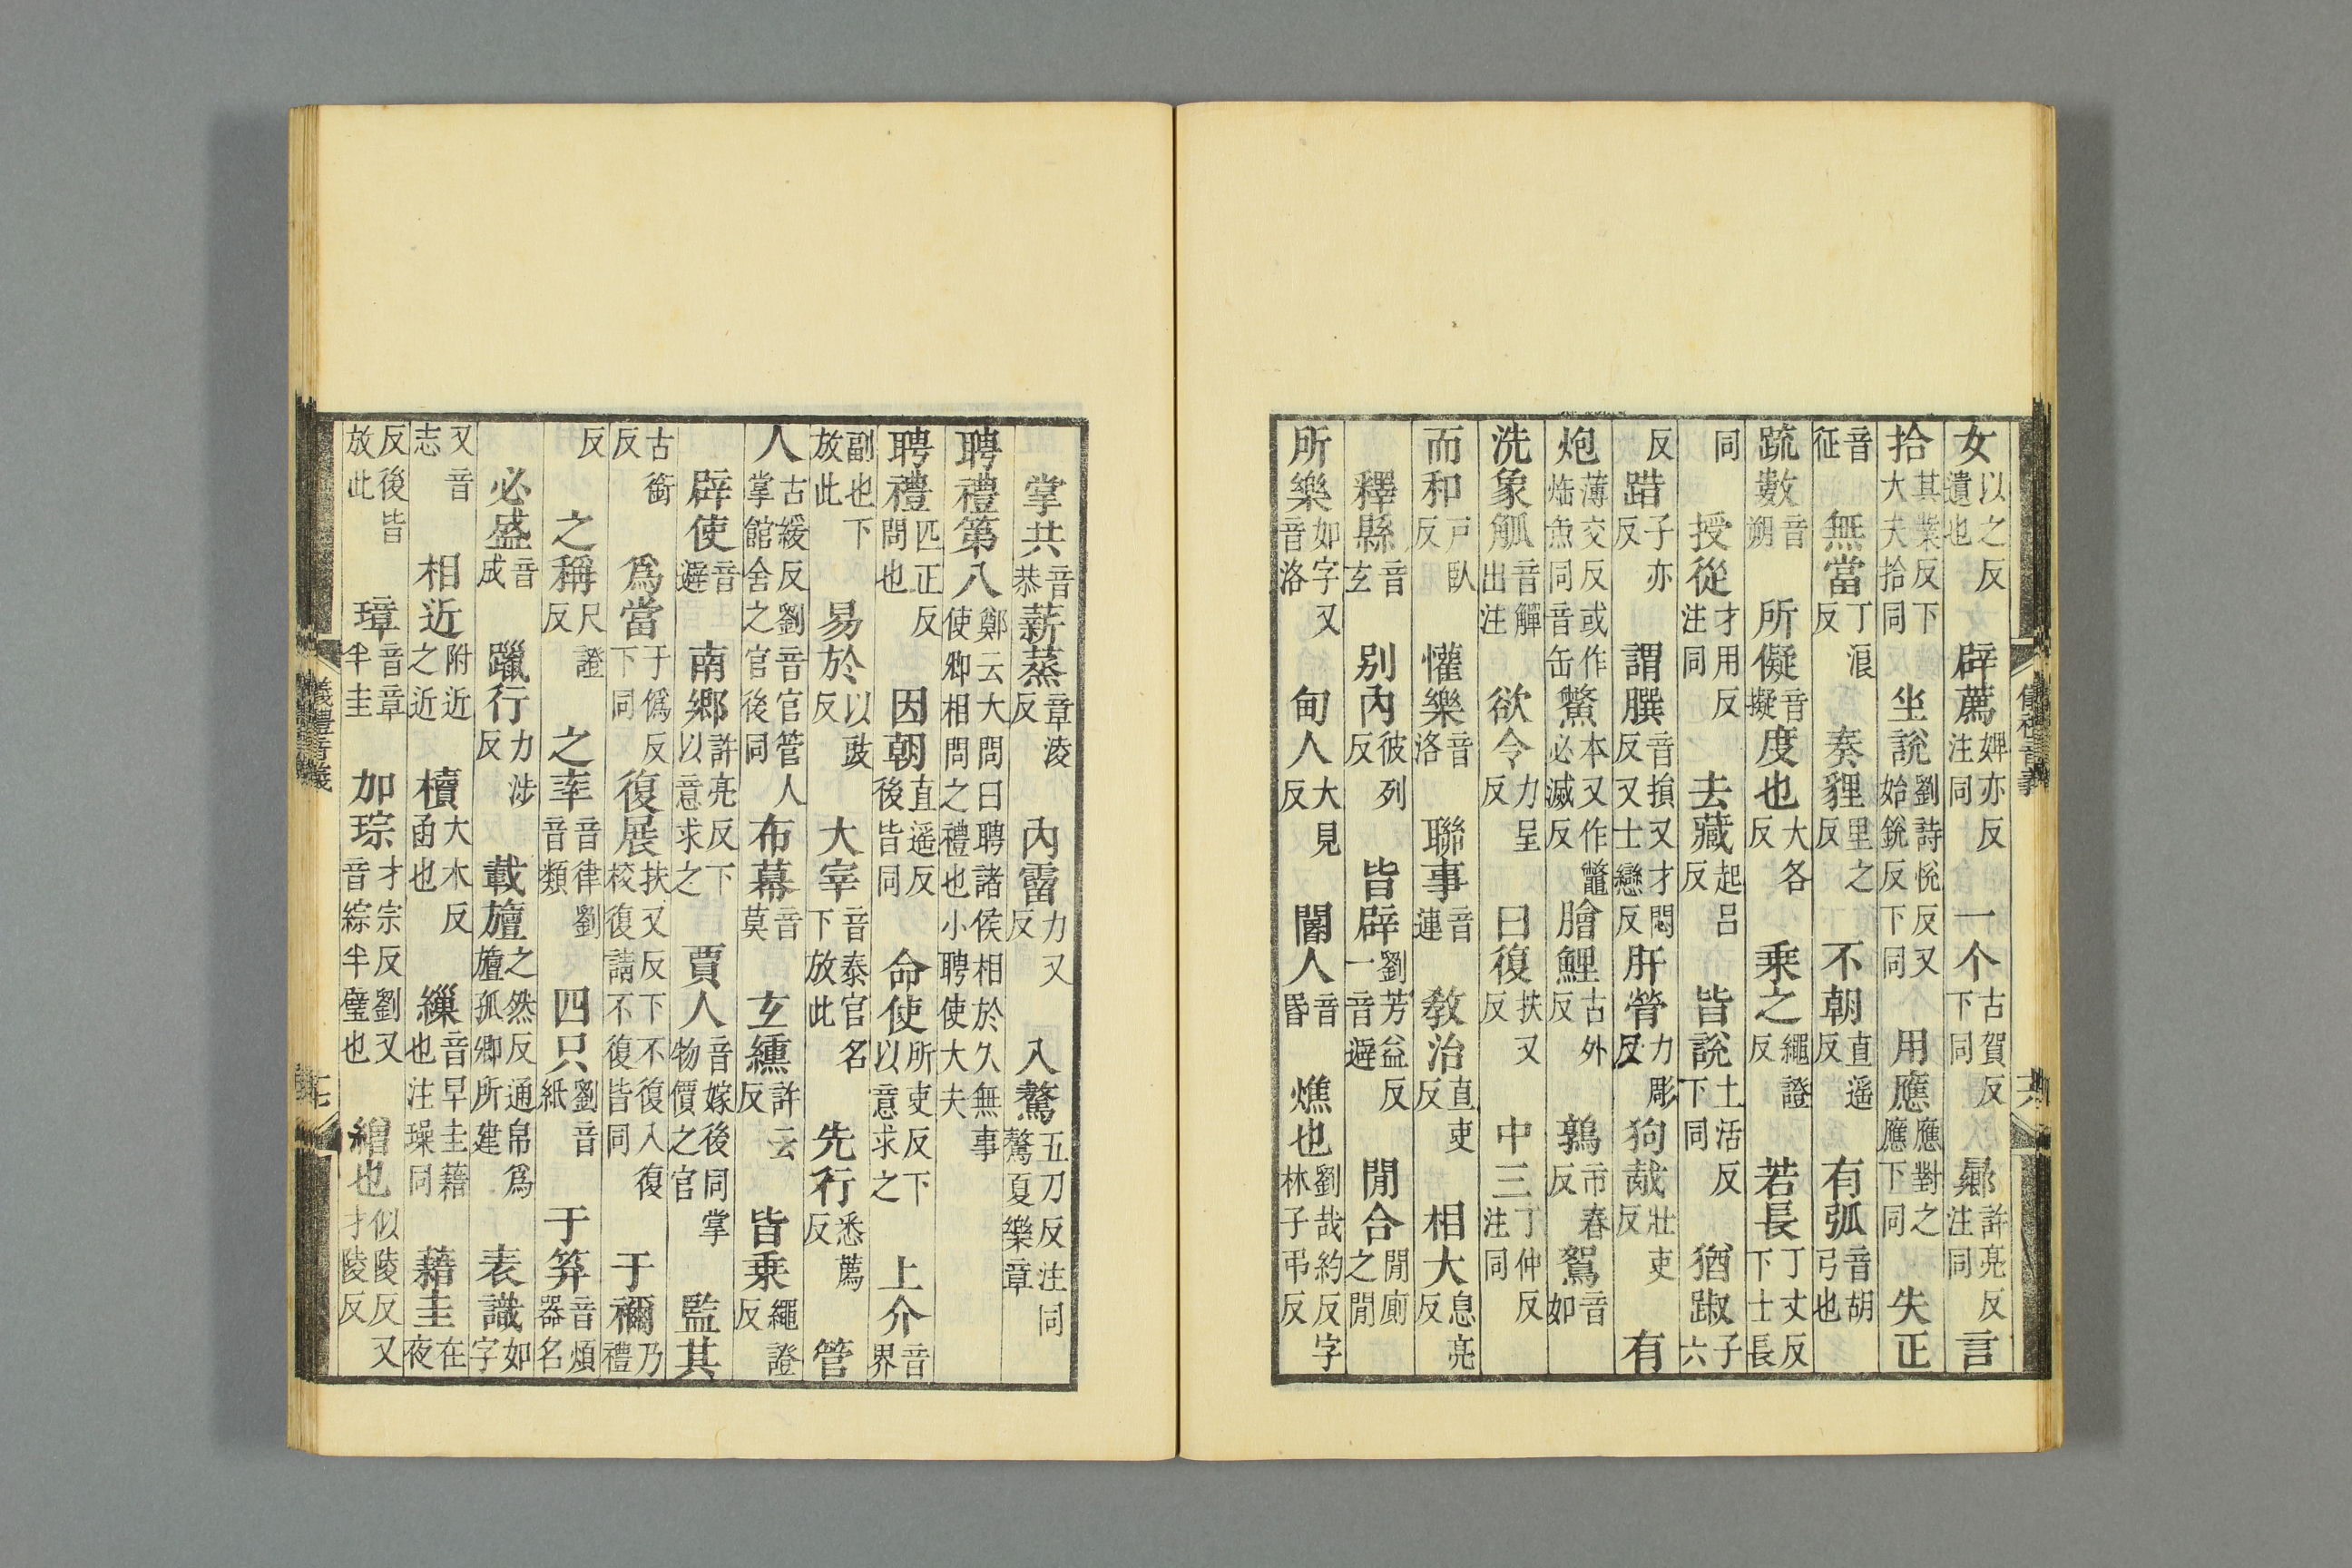 儀禮音義
六
女以之反遺也辟薦婢亦反注同一个古賀反下同鄉許亮反注同言
拾其業反下大夫拾同坐說劉詩悅反又始銳反下同用應應對之應下同失正
音征無當丁浪反奏貍里之反不朝直遥反有弧音胡弓也
䟽數音朔所儗音擬度也大各反乗之繩證反若長丁丈反下士長
同授從才用反注同去藏起呂反皆說土活反下同猶踧子六
反踖子亦反謂𦠆音損又才悶反又士戀反肝膋力彫反狗胾壯吏反有
炮薄交反或作缹炰同音缶鱉本又作鼈必滅反膾鯉古外反鶉市春反鴽音如
洗象觚音觶出注欲令力呈反曰復扶又反中三丁仲反注同
而和戶臥反懽樂音洛聯事音連敎治直吏反相大息亮反
釋縣音玄别內彼列反皆辟劉芳益反一音避閒合閒廁之閒
所樂如字又音洛甸人大見反閽人音昏燋也劉哉約反字林子弔反
掌共音恭薪蒸章淩反內霤力又反入驁五刀反注同驁夏樂章
聘禮第八鄭云大問曰聘諸侯相於久無事使卿相問之禮也小聘使大夫
聘禮匹正反問也因朝直遥反後皆同命使所吏反下以意求之上介音界
副也下放此易於以豉反大宰音泰官名下放此先行悉薦反管
人古緩反劉音官管人掌館舍之官後同布幕音莫玄纁許云反皆乗繩證反
辟使音避南鄉許亮反下以意求之賈人音嫁後同掌物價之官監其
古銜反爲當于僞反下同復展扶又反下不復入復校復請不復皆同于禰乃禮
反之稱尺證反之率音律劉音類四只劉音紙于笲音煩器名
必盛音成躐行力涉反載旜之然反通帛爲旜孤卿所建表識如字
又音志相近附近之近櫝大木反函也繅音早圭藉也注璪同藉圭在夜
反後皆放此璋音章半圭加琮才宗反劉又音綜半璧也繒也似陵反又才陵反
儀禮音義
十七